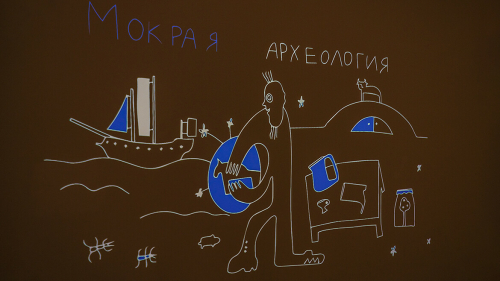 МОКРАЯ
АРХЕОЛОГИЯ